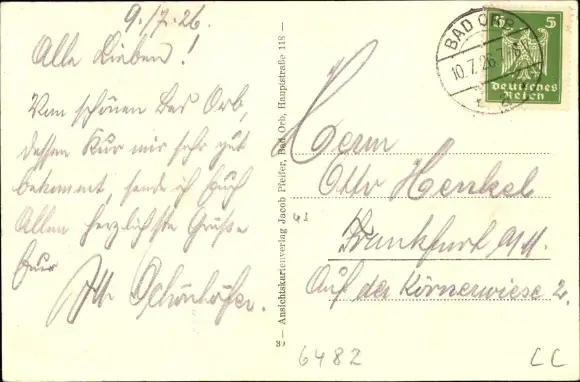 9./7.26.
Alle Lieben!
Vom schönen Bad Orb,
dessen Kur mir sehr gut
bekommt, sende ich Euch
Allen herzlichste Grüße
Eur
39 — Ansichtskartenverlag Jacob Pfeifer, Bad Orb, Hauptstraße 118 —
BAD ORB
10.7.26.7
5 5
Deutsches
Reich
Herrn
Otto Henkel
Frankfurt a/M.
Auf der Körnerwiese 2.
6482
CC